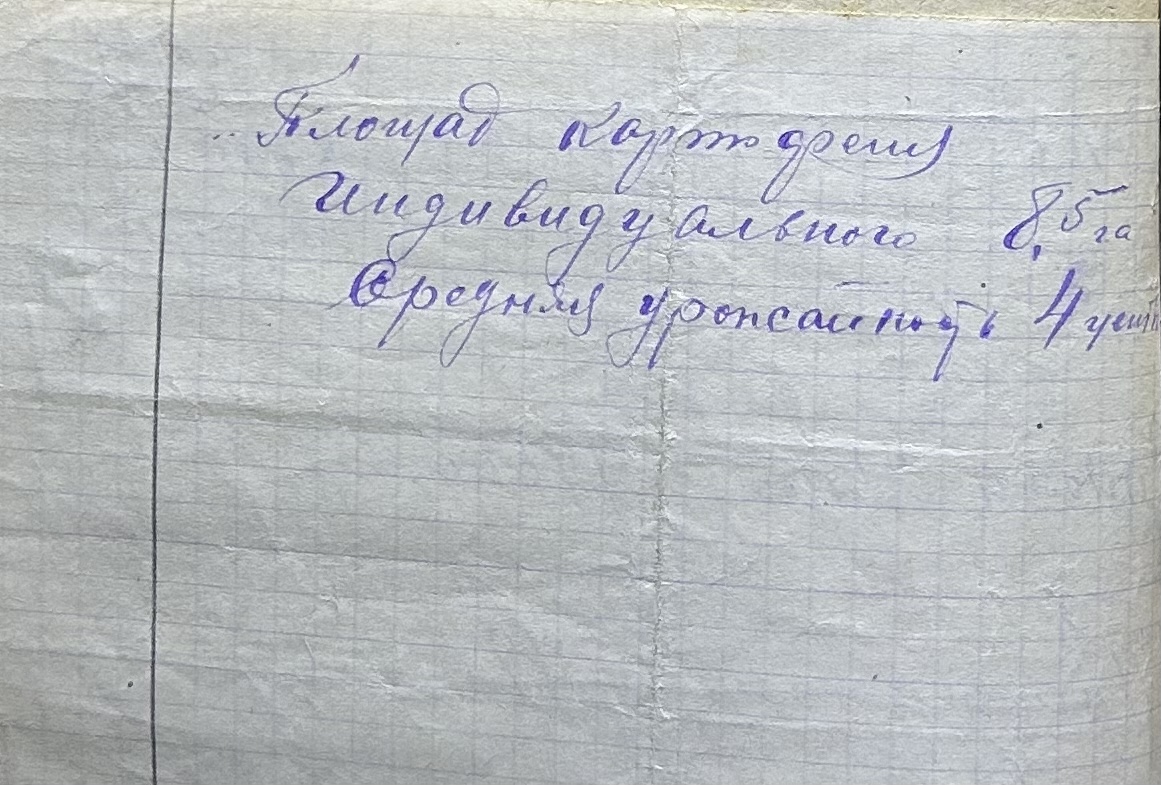 Площад картофеля
Индивидуального 8,5 га
Средняя урожайность 4